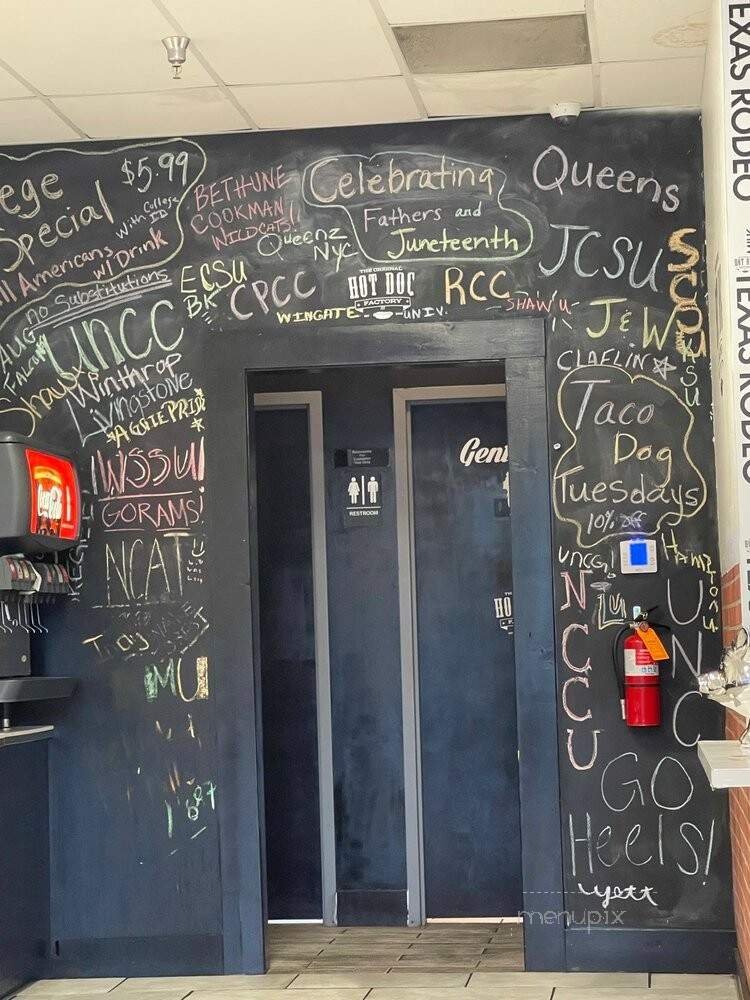 ege
Special
$5.99
With College
ID
All Americans
w/ Drink
no Substitutions
BETHUNE
COOKMAN
WILDCATS!
Queenz
NYC
Celebrating
Fathers and
Juneteenth
Queens
JCSU
SCSU
ECSU
BK
CPCC
THE ORIGINAL
HOT DOG
FACTORY
RCC
SHAW U
WINGATE
UNIV.
J & W
AUG
FALCON
UNCC
Shaw
Winthrop
Livingstone
AGGIE PRIDE
CLAFLIN
Taco
Dog
Tuesdays
10% off
WSSU!
GORAMS!
NCAT
Coca-Cola
RESTROOM
Gent
HO
UNCG!
HAMPTON
NCCU
LU
UNC
MU
GO
Heels!
EXAS RODEO
TEXAS RODEO
menupix